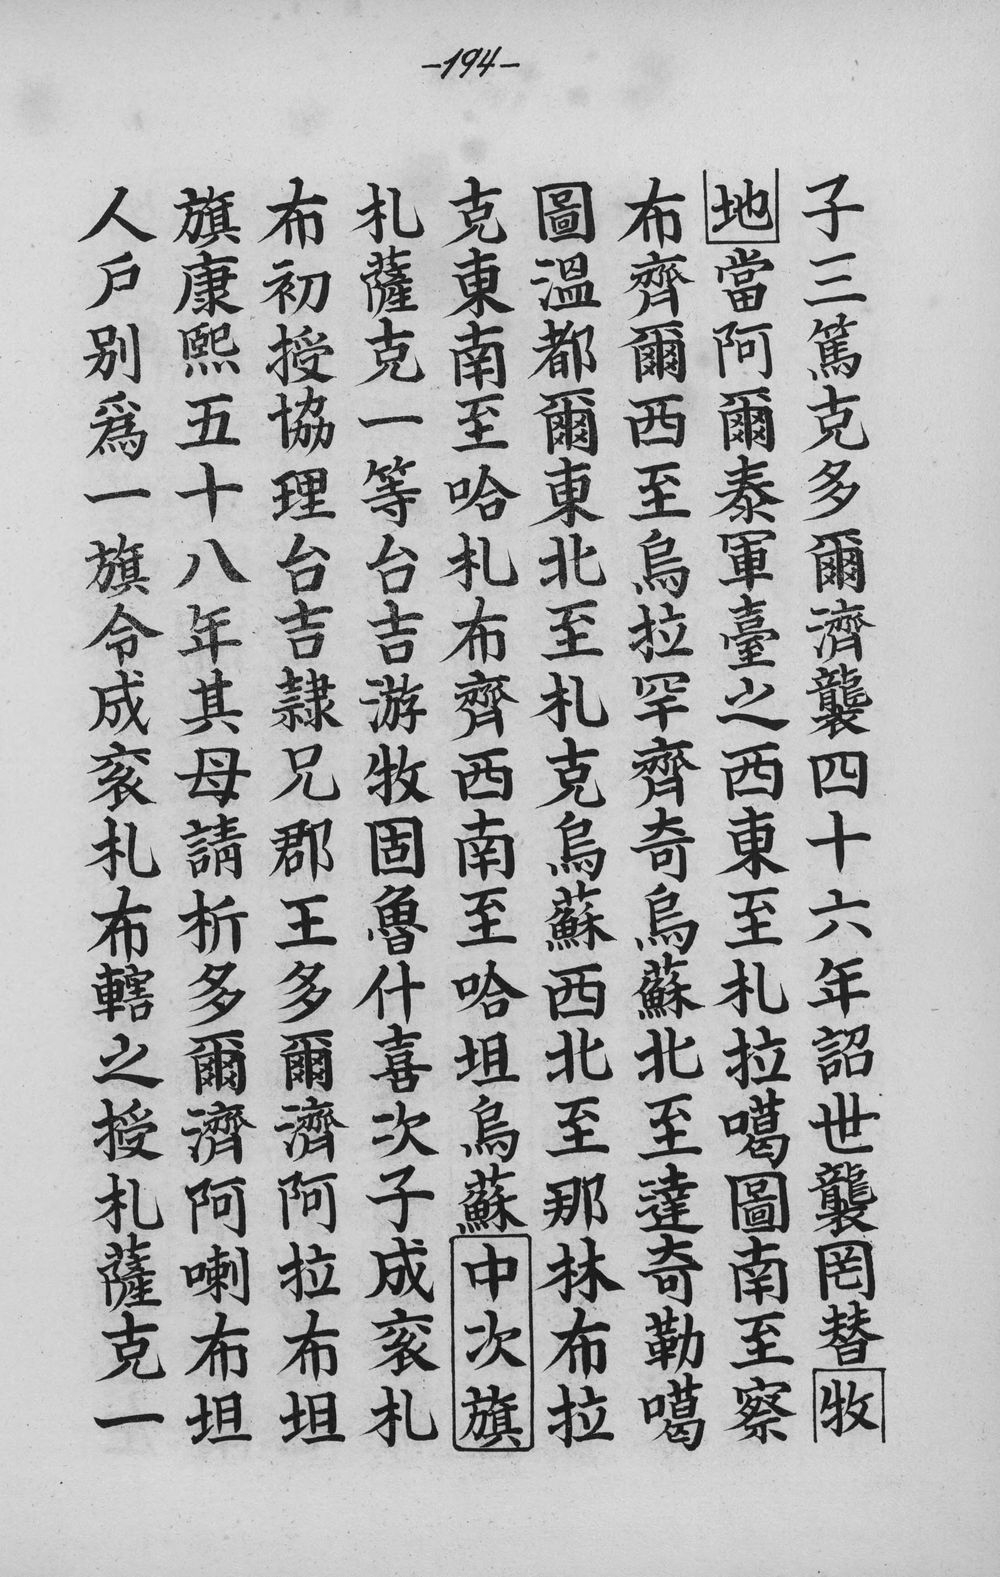 -194-
子三篤克多爾濟襲四十六年詔世襲罔替牧
地當阿爾泰軍臺之西東至札拉噶圖南至察
布齊爾西至烏拉罕齊奇烏蘇北至達奇勒噶
圖溫都爾東北至札克烏蘇西北至那林布拉
克東南至哈札布齊西南至哈坦烏蘇中次旗
札薩克一等台吉游牧固魯什喜次子成袞札
布初授協理台吉隸兄郡王多爾濟阿拉布坦
旗康熙五十八年其母請析多爾濟阿喇布坦
人戶別爲一旗令成袞札布轄之授札薩克一